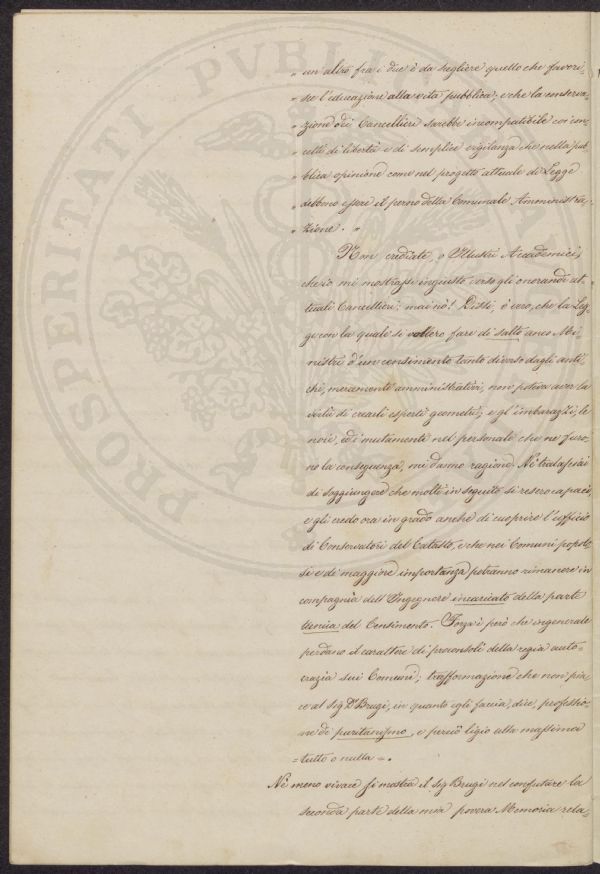 PROSPERITATI PVBLICAE
" un altro fra i due è da scegliere quello che favori-
" sce l'educazione alla vita pubblica; e che la conserva-
" zione dei Cancellieri sarebbe incompatibile coi con-
" cetti di libertà e di semplice vigilanza che nella pub
" blica opinione come nel progetto attuale di Legge
" debbono essere il perno della Comunale Amministra-
" zione. "
Non crediate, o Illustri Accademici,
che io mi mostrassi ingiusto verso gli onorandi at-
tuali Cancellieri; mai nò! Dissi, è vero, che la Leg-
ge con la quale si vollero fare di salto anco Mi-
nistri d'un censimento tanto diverso dagli anti-
chi, meramente amministrativi, non poteva aver la
virtù di crearli esperti geometri; e gl'imbarazzi, le
noie, ed i mutamenti nel personale che ne furo-
no la conseguenza, mi danno ragione. Nè tralasciai
di soggiungere che molti in seguito si resero capaci,
e gli credo ora in grado anche di cuoprire l'ufficio
di Conservatori del Catasto, e che nei Comuni popolo
si e di maggiore importanza potranno rimanere in
compagnia dell'Ingegnere incaricato della parte
tecnica del Censimento. Forza è però che in generale
perdano il carattere di proconsoli della regia auto-
crazia sui Comuni; trasformazione che non pia
ce al Sig. Dr Brugi, in quanto egli faccia, dice, professio-
ne di puritanismo, e perciò ligio alla massima
= tutto o nulla =.
Nè meno vivace si mostra il Sig Brugi nel confutare la
seconda parte della mia povera Memoria rela-